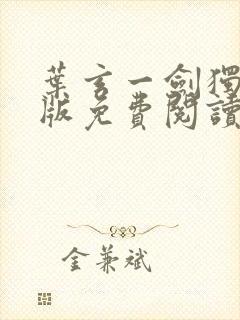 葉玄一劍獨
版免費閱讀
金兼斌